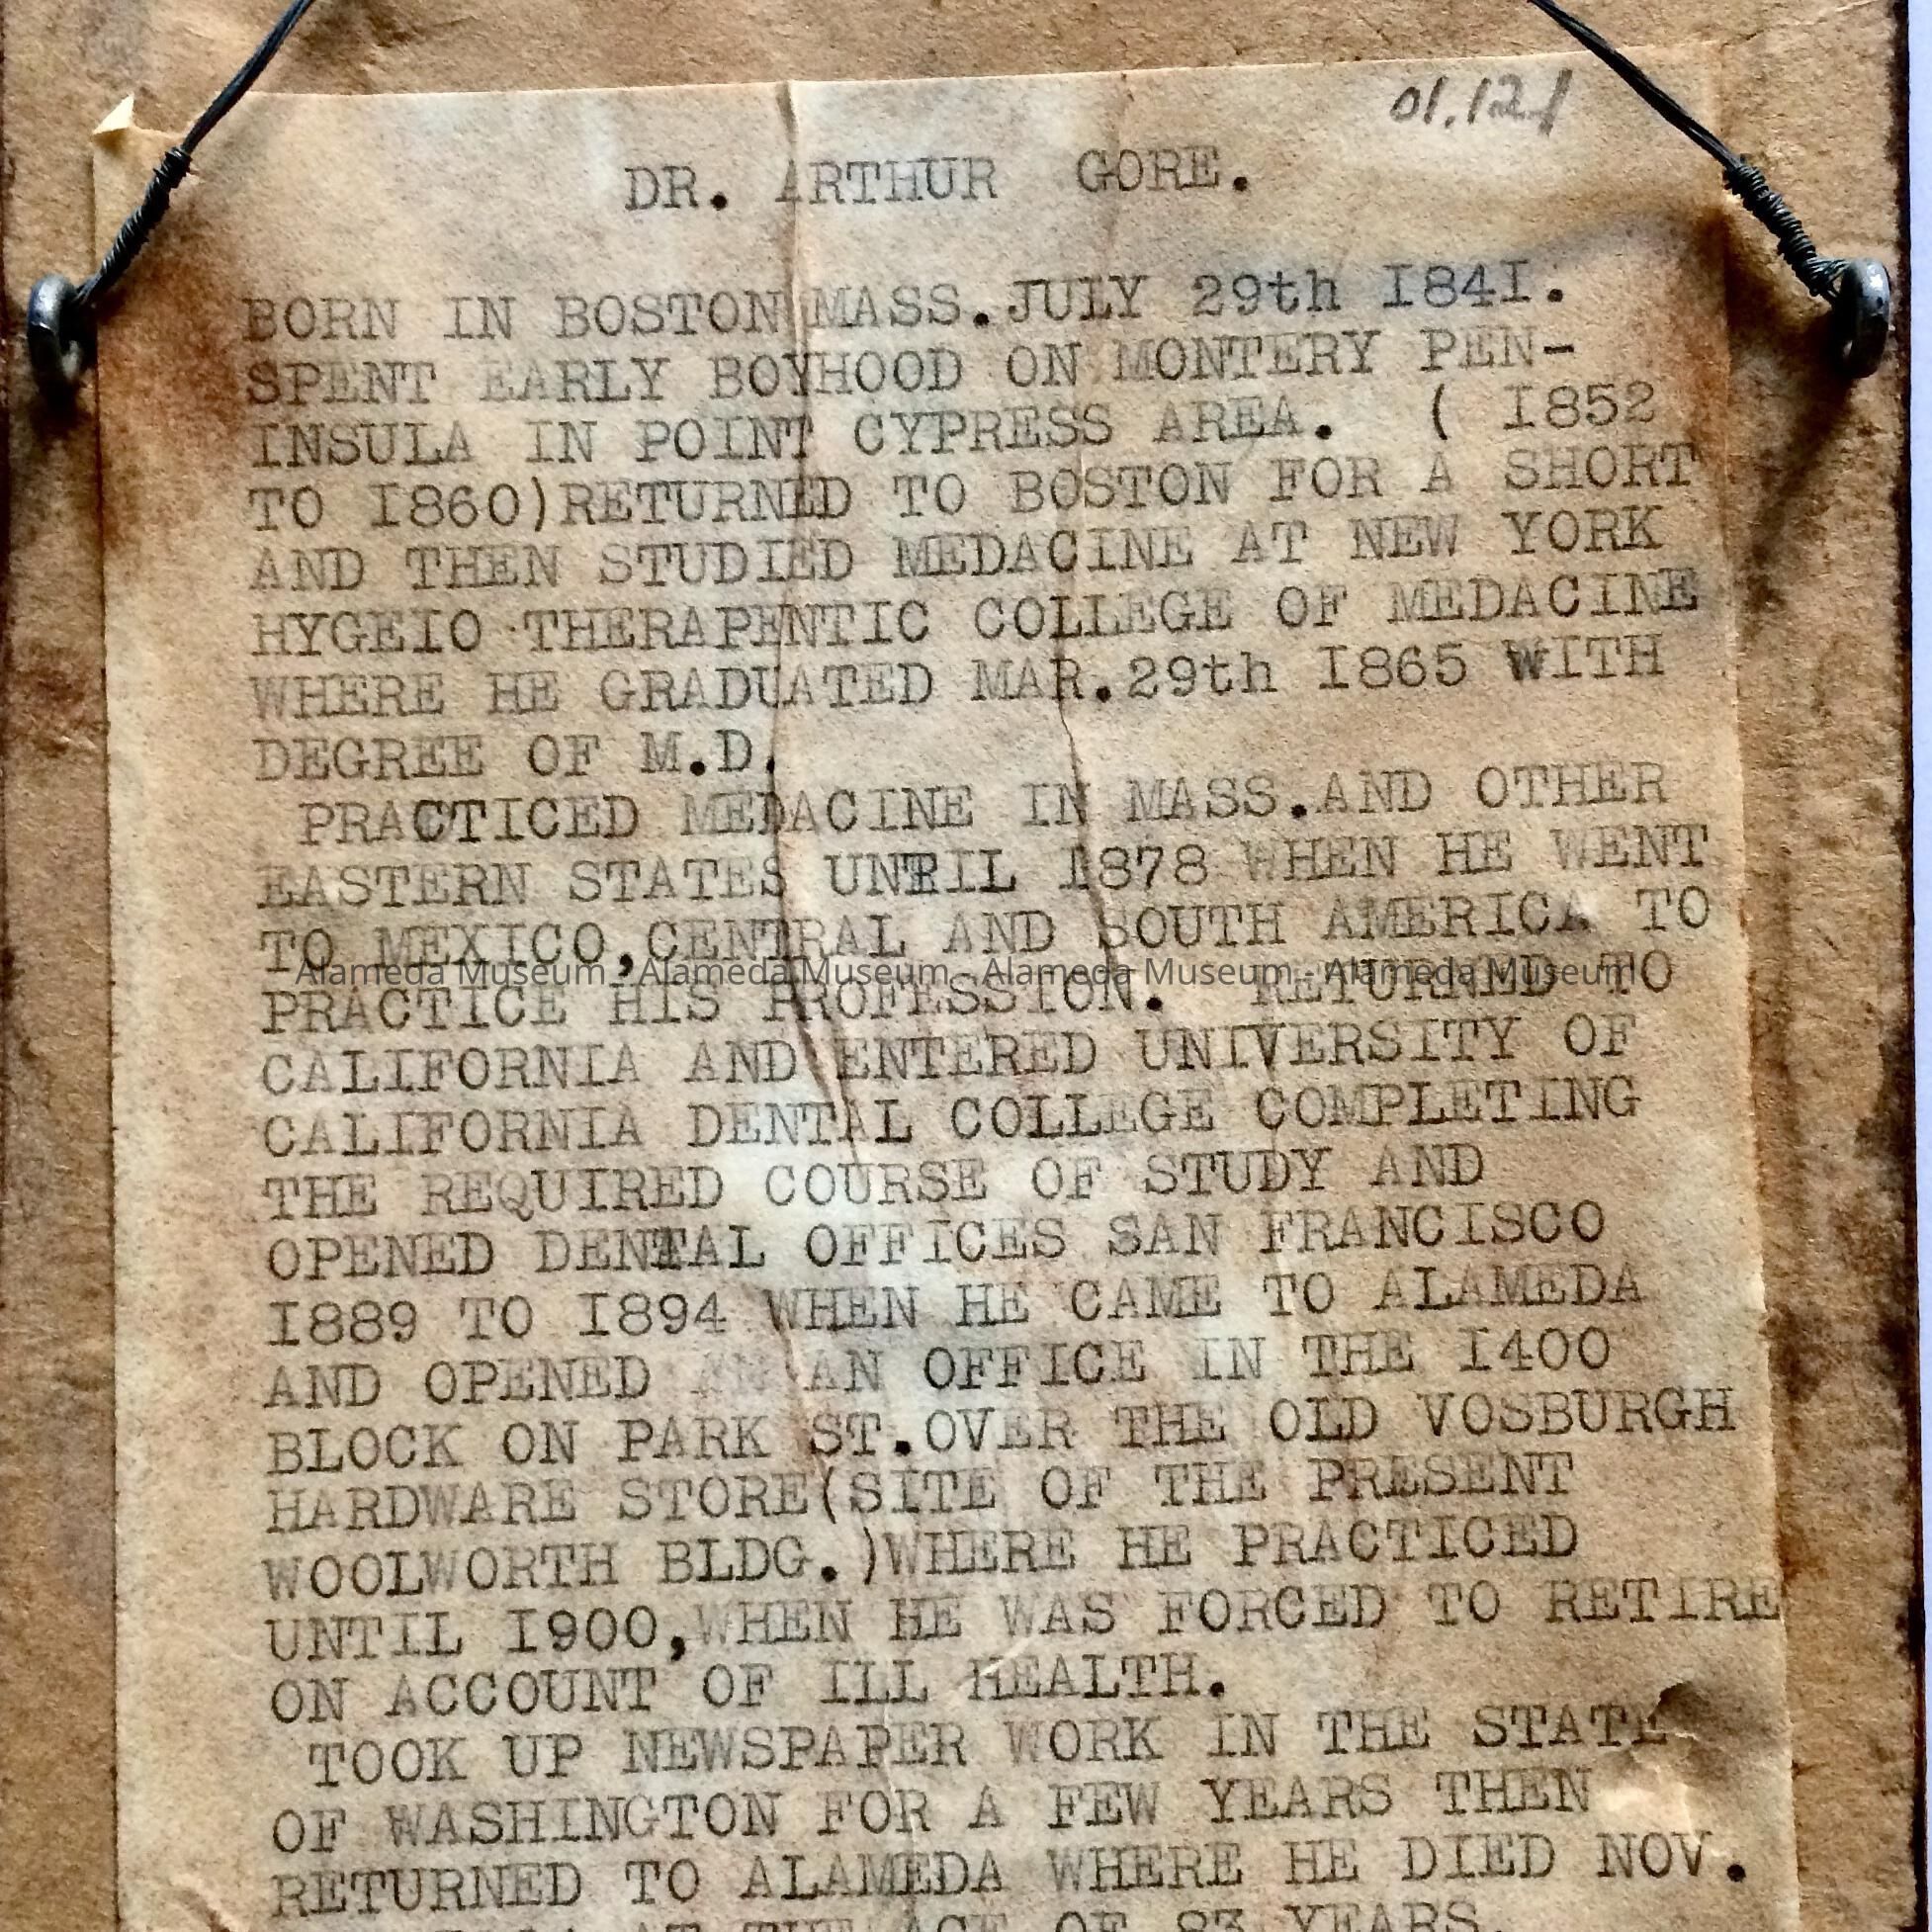 01.121
DR. ARTHUR GORE.
BORN IN BOSTON MASS.JULY 29th I84I.
SPENT EARLY BOYHOOD ON MONTERY PEN-
INSULA IN POINT CYPRESS AREA. ( I852
TO I860)RETURNED TO BOSTON FOR A SHORT
AND THEN STUDIED MEDACINE AT NEW YORK
HYGEIO THERAPENTIC COLLEGE OF MEDACINE
WHERE HE GRADUATED MAR.29th I865 WITH
DEGREE OF M.D.
PRACTICED MEDACINE IN MASS.AND OTHER
EASTERN STATES UNTIL I878 WHEN HE WENT
TO MEXICO,CENTRAL AND SOUTH AMERICA TO
Alameda Museum - Alameda Museum - Alameda Museum - Alameda Museum
PRACTICE HIS PROFESSION. RETURNED TO
CALIFORNIA AND ENTERED UNIVERSITY OF
CALIFORNIA DENTAL COLLEGE COMPLETING
THE REQUIRED COURSE OF STUDY AND
OPENED DENTAL OFFICES SAN FRANCISCO
I889 TO I894 WHEN HE CAME TO ALAMEDA
AND OPENED AN AN OFFICE IN THE I400
BLOCK ON PARK ST.OVER THE OLD VOSBURGH
HARDWARE STORE(SITE OF THE PRESENT
WOOLWORTH BLDG.)WHERE HE PRACTICED
UNTIL I900,WHEN HE WAS FORCED TO RETIRE
ON ACCOUNT OF ILL HEALTH.
TOOK UP NEWSPAPER WORK IN THE STATE
OF WASHINGTON FOR A FEW YEARS THEN
RETURNED TO ALAMEDA WHERE HE DIED NOV.
AT THE AGE OF 83 YEARS.